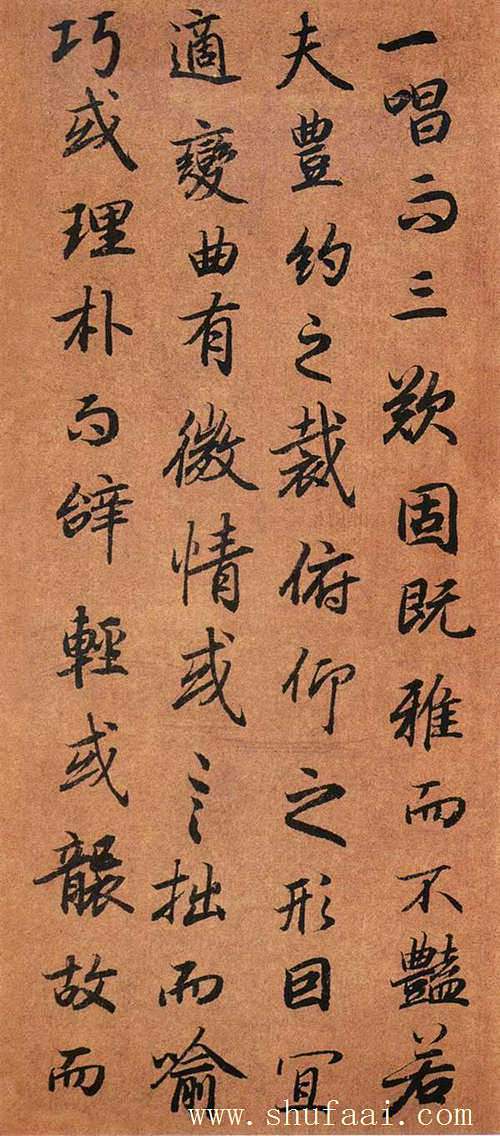 一唱而三歎固既雅而不豔若
夫豊約之裁俯仰之形因宜
適變曲有微情或言拙而喻
巧或理朴而辞輕或襲故而
www.shufaai.com